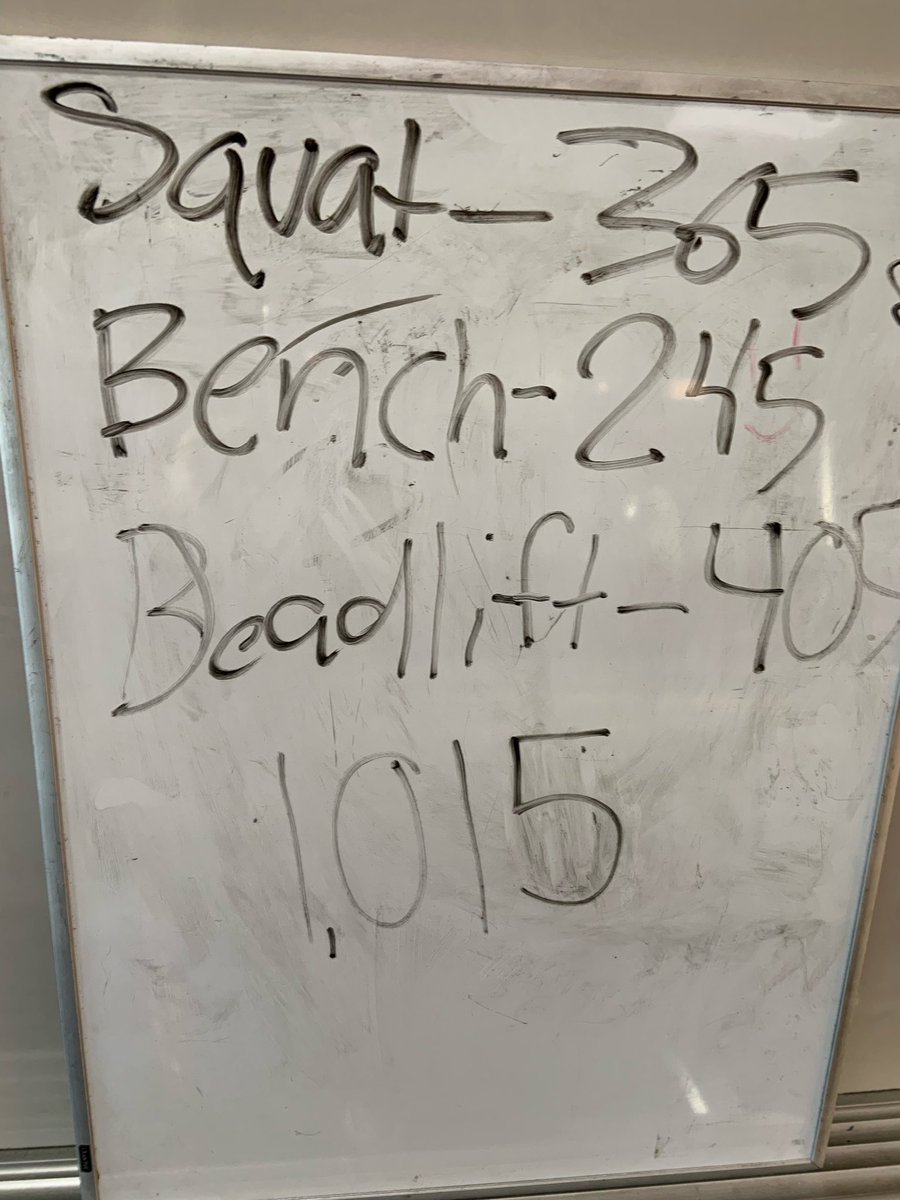 Squat - 365
Bench - 245
Deadlift - 405
1,015